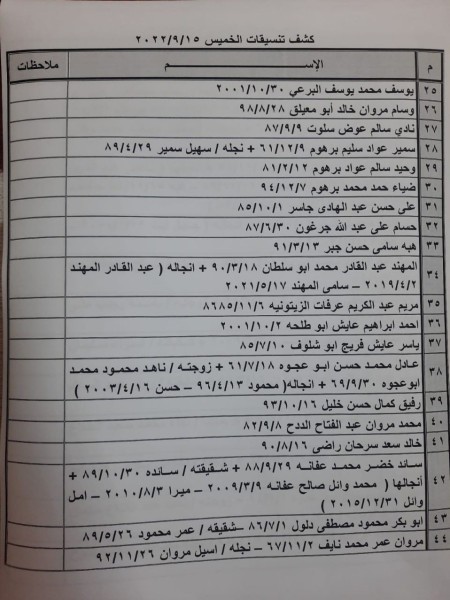 كشف تنسيقات الخميس ٢٠٢٢/٩/١٥
م الإســـــم ملاحظات
٢٥ يوسف محمد يوسف البرعي ٢٠٠١/١٠/٣٠
٢٦ وسام مروان خالد أبو معيلق ٩٨/٨/٢٨
٢٧ نادي سالم عوض سلوت ٨٧/٩/٩
٢٨ سمير عواد سليم برهوم ٦١/١٢/٩ + نجله / سهيل سمير ٨٩/٤/٢٩
٢٩ وحيد سالم عواد برهوم ٨١/٢/١٢
٣٠ ضياء حمد محمد برهوم ٩٤/١٢/٧
٣١ على حسن عبد الهادى جاسر ٨٥/١٠/١
٣٢ حسام على عبد الله جرغون ٨٧/٦/٣٠
٣٣ هبه سامى حسن جبر ٩١/٣/١٣
٣٤ المهند عبد القادر محمد ابو سلطان ٩٠/٣/١٨ + انجاله ( عبد القادر المهند
٢٠١٩/٤/٢ – سامى المهند ٢٠٢١/٥/١٧
٣٥ مريم عبد الكريم عرفات الزيتونيه ٨٦٨٥/١١/٦
٣٦ احمد ابراهيم عايش ابو طلحه ٢٠٠١/١٠/٢
٣٧ ياسر عايش فريح ابو شلوف ٨٥/٧/١٠
٣٨ عـادل محمـد حسـن ابـو عجـوه ٦١/٧/١٨ + زوجتـه / ناهـد محمـود محمـد
ابوعجوه ٦٩/٩/٣٠ + انجاله( محمود ٩٦/٤/١٣ – حسن ٢٠٠٣/٤/١٦ )
٣٩ رفيق كمال حسن خليل ٩٣/١٠/١٦
٤٠ محمد مروان عبد الفتاح الددح ٨٢/٩/٨
٤١ خالد سعد سرحان راضى ٩٠/٨/١٦
٤٢ سـائد خضـر محمـد عفانـه ٨٨/٩/٢٩ + شـقيقته / سـائده ٨٩/١٠/٣٠ +
أنجالها ( محمد وائل صالح عفانه ٢٠٠٩/٣/٩ – ميرا ٢٠١٠/٨/٣ – امـل
وائل ٢٠١٥/١٢/٣١ )
٤٣ ابو بكر محمود مصطفى دلول ٨٦/٧/١ –شقيقه / عمر محمود ٨٩/٥/٢٦
٤٤ مروان عمر محمد نايف ٦٧/١١/٢ – نجله / اسيل مروان ٩٢/١١/٢٦